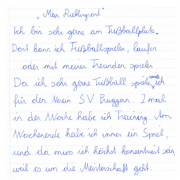 "Mein Lieblingsort"
Ich bin sehr gerne am Fußballplatz.
Dort kann ich Fußballspielen, laufen
oder mit meinen Freunden spielen.
Da ich sehr gerne Fußball spiele, spiele ich
für den Verein SV Brüggen. 2 mal
in der Woche habe ich Training. Am
Wochenende habe ich immer ein Spiel,
und da muss ich höchst konzentriert sein
weil es um die Meisterschaft geht.